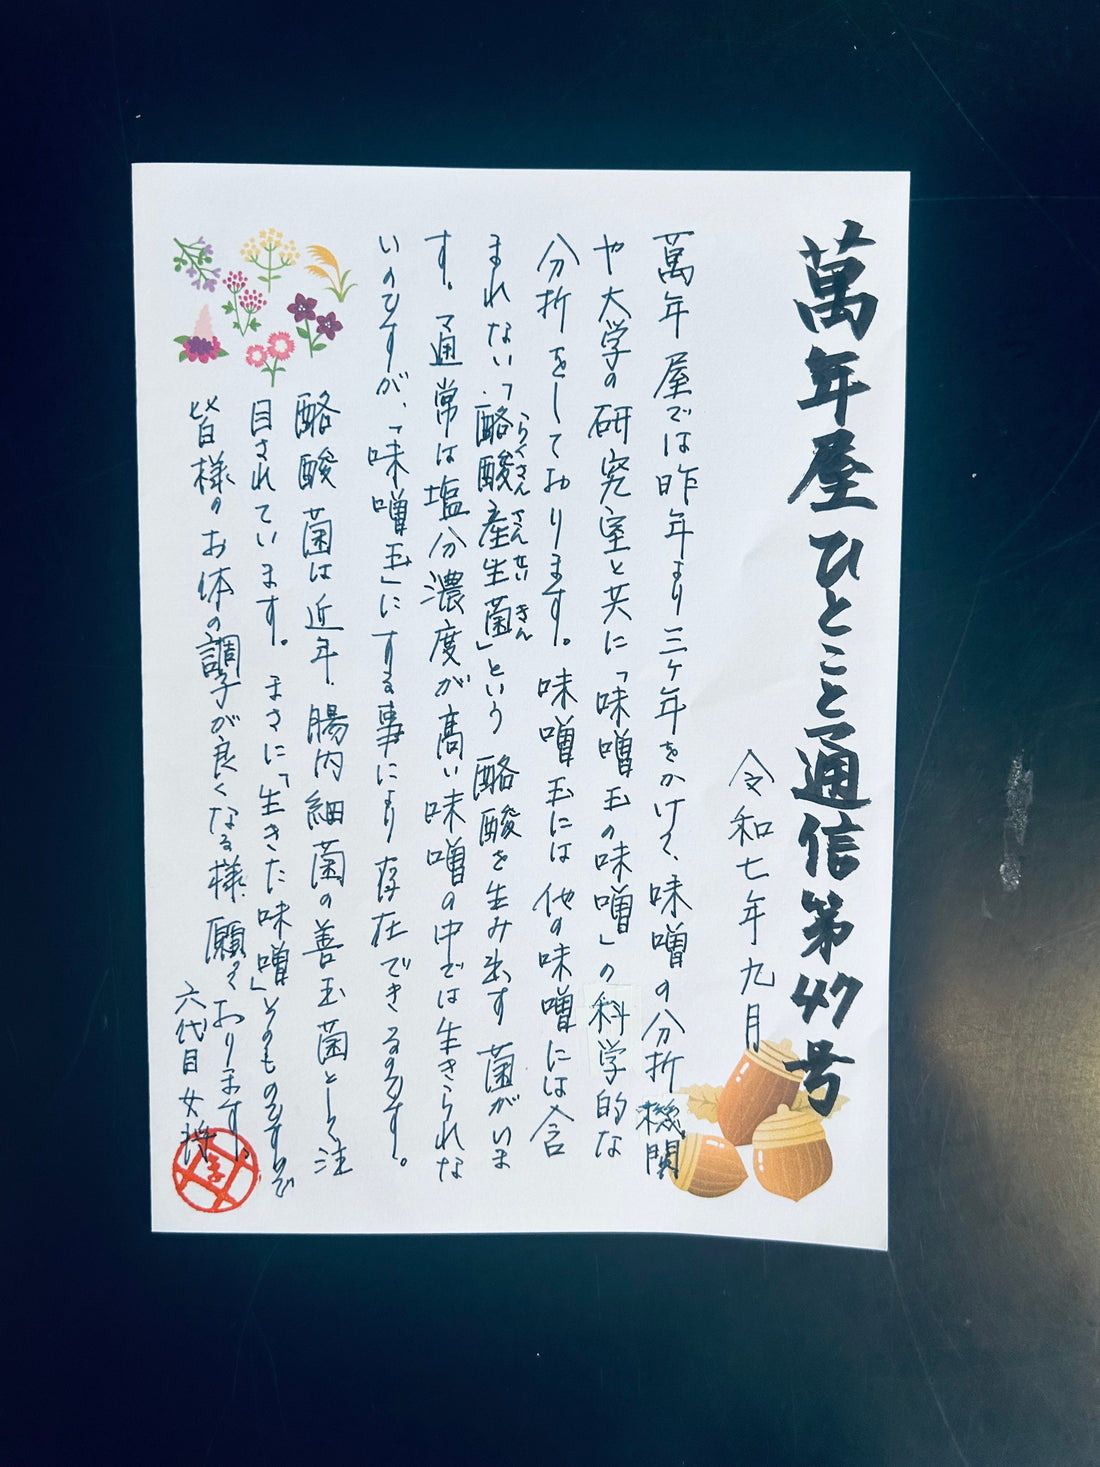 萬年屋ひとこと通信第47号
令和七年九月
萬年屋では昨年より三ヶ年をかけて、味噌の分析機関
や大学の研究室と共に「味噌玉の味噌」の科学的な
分析をしております。味噌玉には他の味噌には含
まれない「酪酸産生菌」という酪酸を生み出す菌がいま
らくさんさんせいきん
す。通常は塩分濃度が高い味噌の中では生きられな
いのですが、「味噌玉」にする事により存在できるのです。
酪酸菌は近年、腸内細菌の善玉菌として注
目されています。まさに「生きた味噌」そのものですので
皆様のお体の調子が良くなる様、願っております。
六代目女将